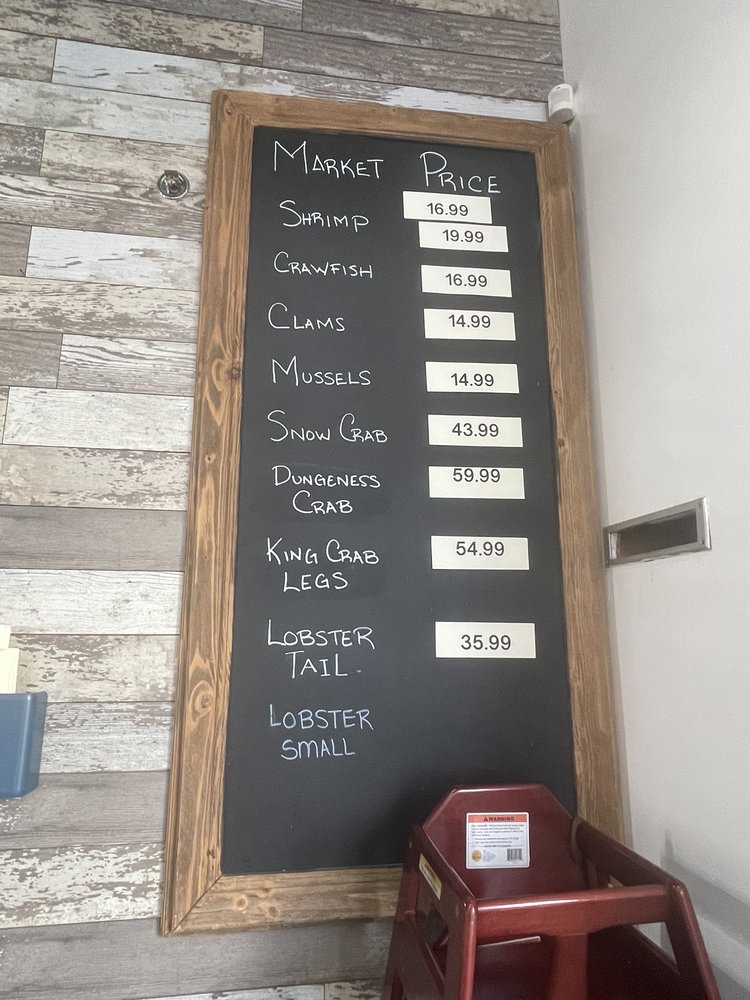 MARKET PRICE
SHRIMP 16.99
19.99
CRAWFISH 16.99
CLAMS 14.99
MUSSELS 14.99
SNOW CRAB 43.99
DUNGENESS 59.99
CRAB
KING CRAB 54.99
LEGS
LOBSTER 35.99
TAIL.
LOBSTER
SMALL
WARNING